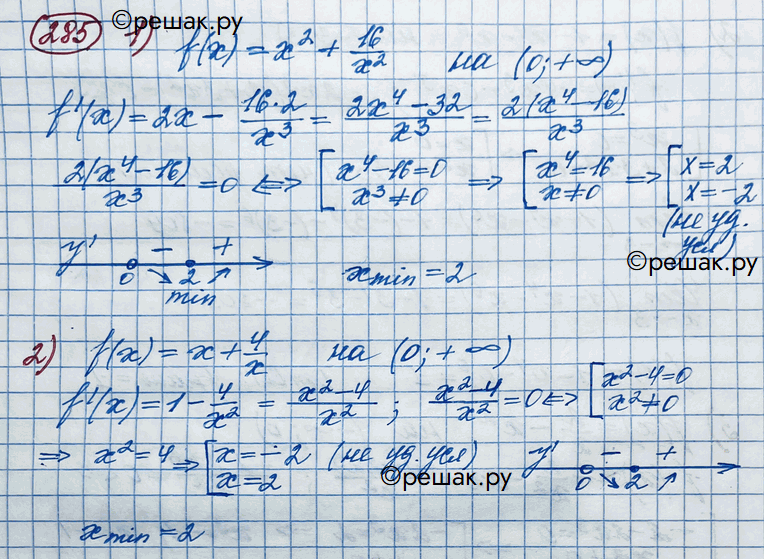 ©решак.ру
285 1) f(x) = x² + 16/x² на (0; +∞)
f'(x) = 2x − 16·2/x³ = 2x⁴ − 32/x³ = 2(x⁴ − 16)/x³
2(x⁴ − 16)/x³ = 0 ⟺ [x⁴ − 16 = 0 x³ ≠ 0 ⟹ [x⁴ = 16 x ≠ 0 ⟹ [x = 2 x = −2
(не уд. усл)
y' − +
0 ↘ 2 ↗
min
x min = 2
©решак.ру
2) f(x) = x + 4/x на (0; +∞)
f'(x) = 1 − 4/x² = x² − 4/x² ; x² − 4/x² = 0 ⟺ [x² − 4 = 0 x² ≠ 0
⟹ x² = 4 ⟹ [x = −2 (не уд. усл) x = 2
y' − +
0 ↘ 2 ↗
©решак.ру
x min = 2